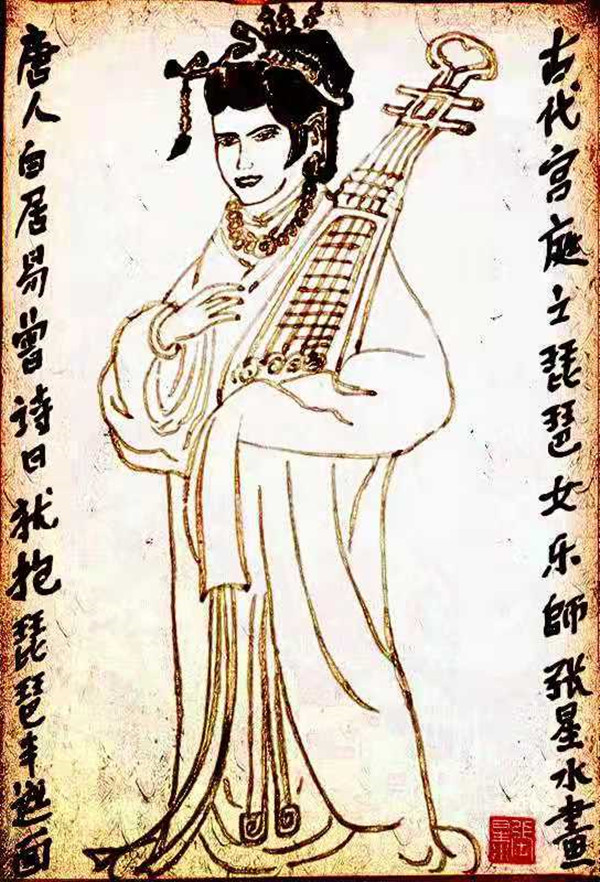 古代宫庭之琵琶女乐師张星水畫
唐人白居易曾诗曰犹抱琵琶半遮面